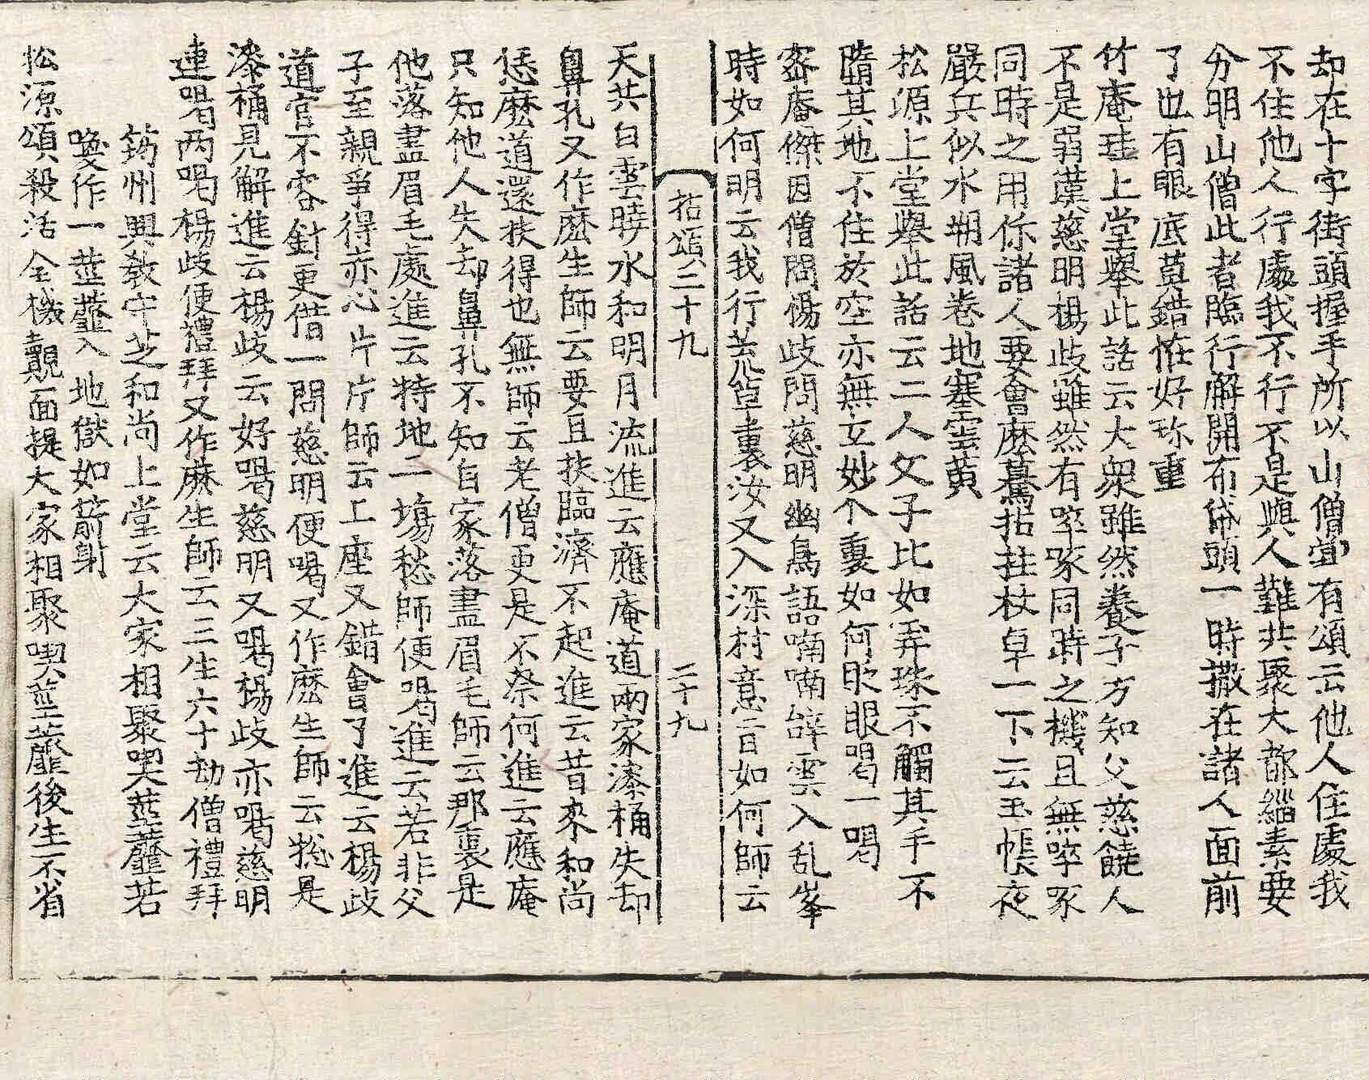 却在十字街頭握手所以山僧當有頌云他人住處我
不住他人行處我不行不是與人難共聚大都緇素要
分明山僧此者臨行解開布袋頭一時撒在諸人面前
了也有眼底莫錯恠好珎重
竹庵珪上堂舉此話云大衆雖然養子方知父慈饒人
不是弱漢慈明楊歧雖然有啐啄同時之機且無啐啄
同時之用你諸人要會麽驀拈拄杖卓一下云玉帳夜
嚴兵似水朔風卷地塞雲黄
松源上堂舉此話云二人父子比如弄珠不觸其手不
墮其地不住於空亦無立妙个裏如何眨眼喝一喝
密庵傑因僧問楊歧問慈明幽鳥語喃喃辝雲入乱峯
時如何明云我行荒草裏汝又入深村意旨如何師云
拈頌二十九
二十九
天共白雲曉水和明月流進云應庵道兩家漆桶失却
鼻孔又作麽生師云要且扶臨濟不起進云昔來和尚
恁麽道還扶得也無師云老僧更是不奈何進云應庵
只知他人失却鼻孔不知自家落盡眉毛師云那裏是
他落盡眉毛處進云特地一塲愁師便喝進云若非父
子至親爭得赤心片片師云上座又錯會了進云楊歧
道官不容針更借一問慈明便喝又作麽生師云捴是
漆桶見解進云楊歧云好喝慈明又喝楊歧亦喝慈明
連喝两喝楊歧便禮拜又作麽生師云三生六十劫僧禮拜
筠州興敎守芝和尚上堂云大家相聚喫莖虀若
喚作一莖虀入地獄如箭射
松源頌殺活全機覿面提大家相聚喫莖虀後生不省